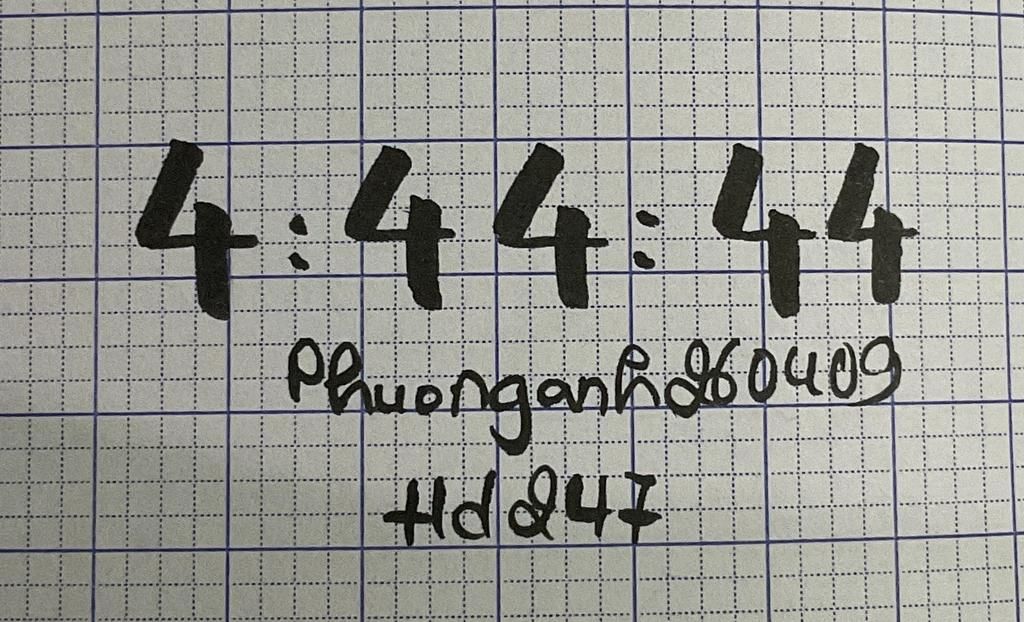 4:44:44
Phuonganh260409
Hd247